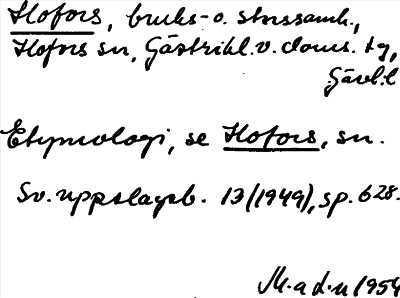 Hofors, bruks- o. storsamh.,
Hofors sn, Gästrikl. v. doms. tg,
Gävl. l
Etymologi, se Hofors, sn.
Sv. uppslagsb. 13 (1949), sp. 628.
M.a d.n 1954